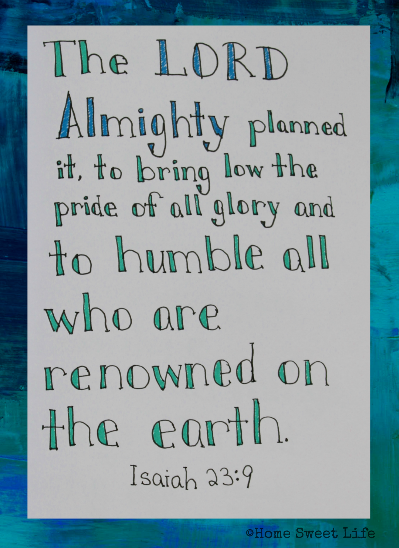 The LORD
Almighty planned
it, to bring low the
pride of all glory and
to humble all
who are
renowned on
the earth.
Isaiah 23:9
©Home Sweet Life